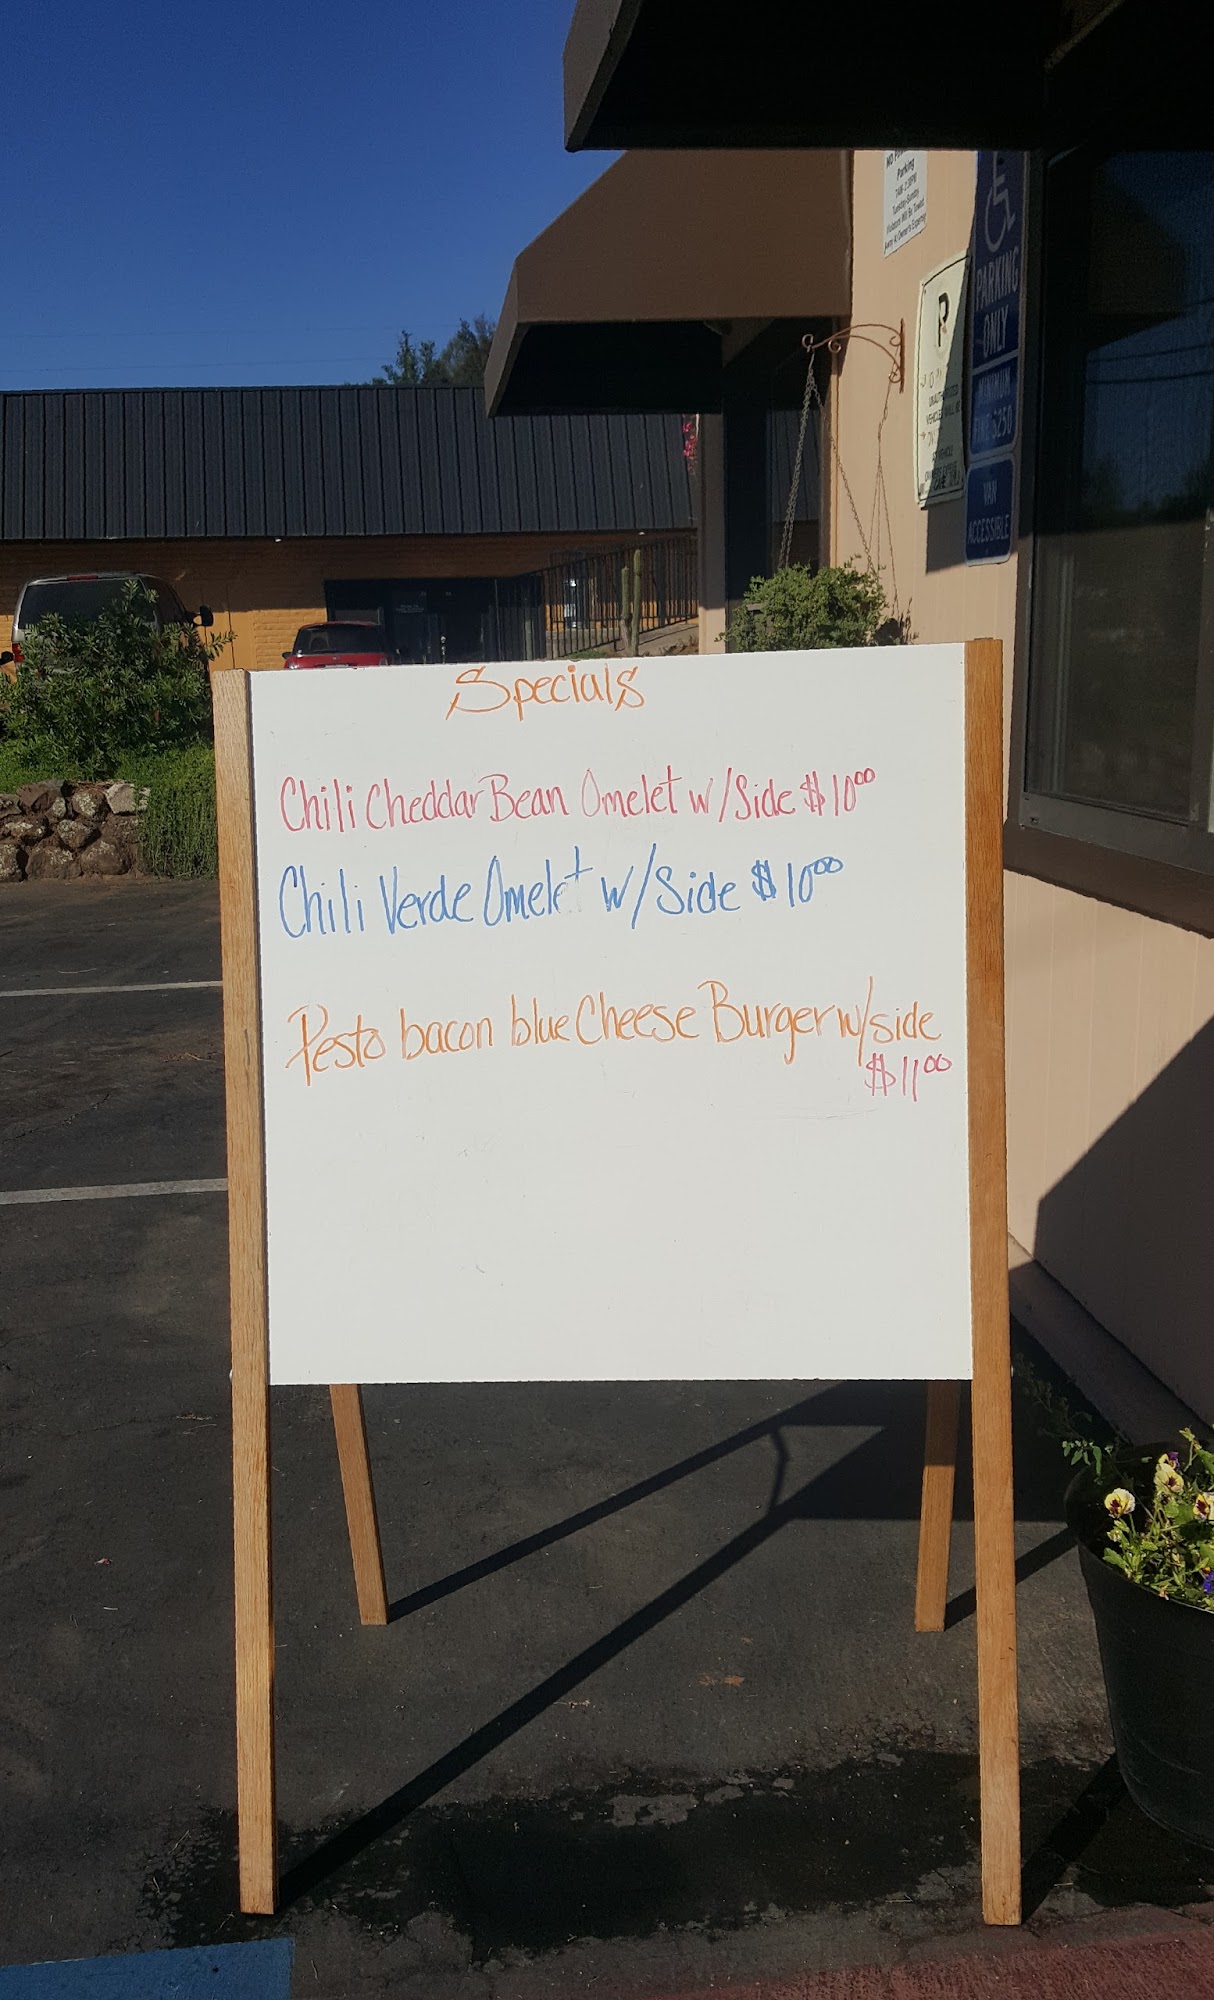 Specials
Chili Cheddar Bean Omelet w/Side $10⁰⁰
Chili Verde Omelet w/Side $10⁰⁰
Pesto bacon blue Cheese Burger w/side
$11⁰⁰
Parking
PARKING
ONLY
MINIMUM
FINE $250
VAN
ACCESSIBLE